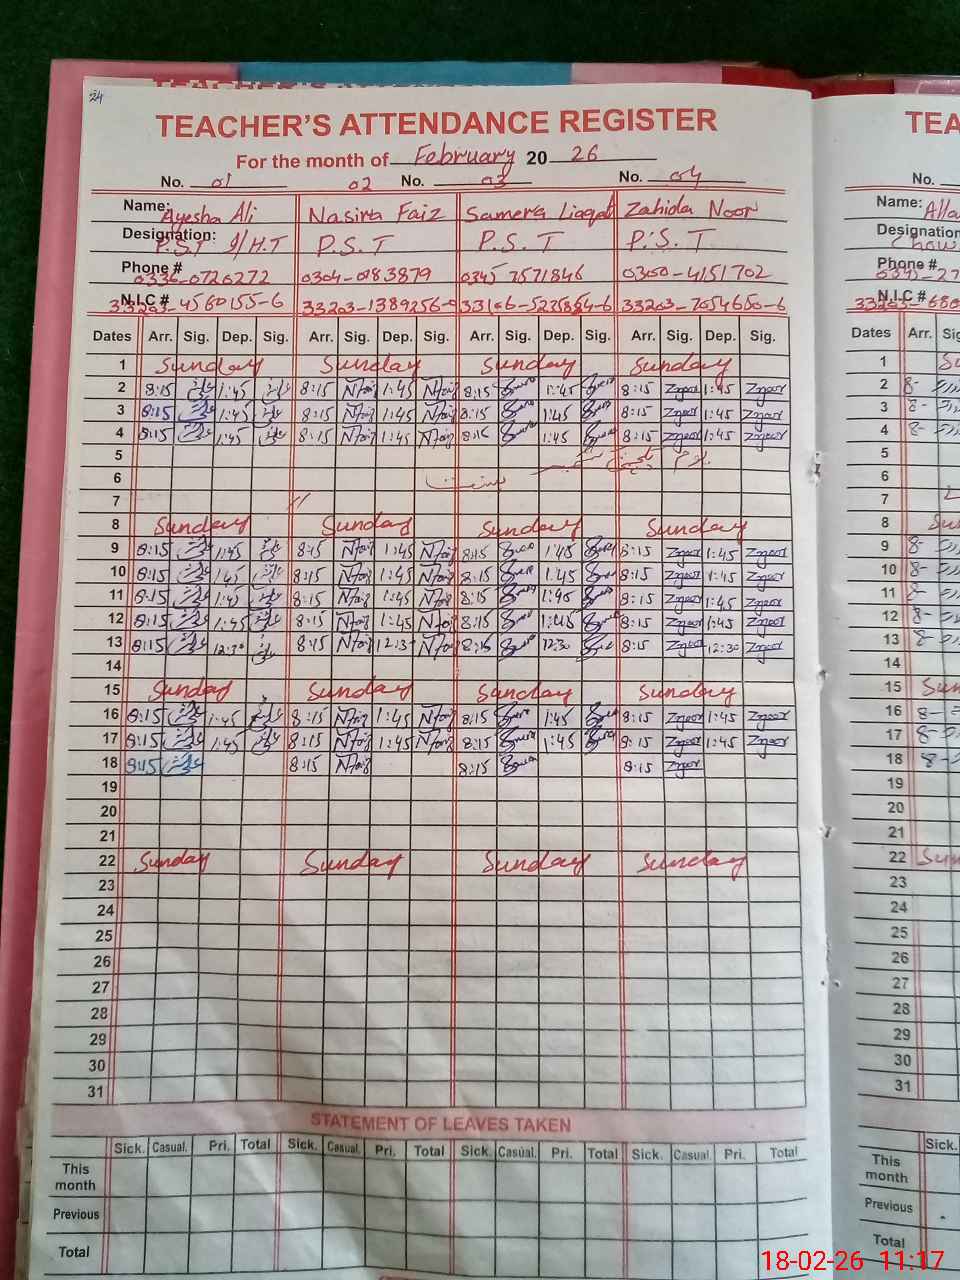 24
TEACHER'S ATTENDANCE REGISTER
For the month of February 20 26
No. 01 02 No. 03 No. 04
Name: Ayesha Ali Nasira Faiz Samera Liaqat Zahida Noor
Designation: P.S.T I/H.T P.S.T P.S.T P.S.T
Phone # 0336-0726272 0304-0783879 0345 7571846 0300-4151702
N.I.C # 33203-1389256- 33203-7054650-6
Dates Arr. Sig. Dep. Sig. Arr. Sig. Dep. Sig. Arr. Sig. Dep. Sig. Arr. Sig. Dep. Sig.
1 Sunday Sunday Sunday Sunday
2 8:15 1:45 8:15 NFaiz 1:45 NFaiz 8:15 1:45 8:15 Znoor 1:45 Znoor
3 8:15 1:45 8:15 NFaiz 1:45 NFaiz 8:15 1:45 8:15 Znoor 1:45 Znoor
4 8:15 1:45 8:15 NFaiz 1:45 NFaiz 8:15 1:45 8:15 Znoor 1:45 Znoor
5 یوم یکجہتی کشمیر
6 بسنت
7 //
8 Sunday Sunday Sunday Sunday
9 8:15 1:45 8:15 NFaiz 1:45 NFaiz 8:15 1:45 8:15 Znoor 1:45 Znoor
10 8:15 1:45 8:15 NFaiz 1:45 NFaiz 8:15 1:45 8:15 Znoor 1:45 Znoor
11 8:15 1:45 8:15 NFaiz 1:45 NFaiz 8:15 1:45 8:15 Znoor 1:45 Znoor
12 8:15 1:45 8:15 NFaiz 1:45 NFaiz 8:15 1:45 8:15 Znoor 1:45 Znoor
13 8:15 12:30 8:15 NFaiz 12:30 NFaiz 8:15 12:30 8:15 Znoor 12:30 Znoor
14
15 Sunday Sunday Sunday Sunday
16 8:15 1:45 8:15 NFaiz 1:45 NFaiz 8:15 1:45 8:15 Znoor 1:45 Znoor
17 8:15 1:45 8:15 NFaiz 1:45 NFaiz 8:15 1:45 8:15 Znoor 1:45 Znoor
18 8:15 8:15 NFaiz 8:15 8:15 Znoor
19
20
21
22 Sunday Sunday Sunday Sunday
23
24
25
26
27
28
29
30
31
STATEMENT OF LEAVES TAKEN
Sick. Casual. Pri. Total Sick. Casual. Pri. Total Sick. Casual. Pri. Total Sick. Casual. Pri. Total
This month
Previous
Total
TEA
No.
Name:
Designation
Phone #
N.I.C #
Dates Arr.
1
2 8-
3 8-
4 8-
5
6
7
8
9 8-
10 8-
11 8-
12 8-
13 8-
14
15
16 8-
17 8-
18 8-
19
20
21
22
23
24
25
26
27
28
29
30
31
Sick.
This month
Previous
Total
18-02-26 11:17